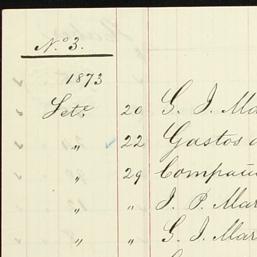 Nº 3.
1873
Sete. 20 G. J. Ma
„ 22 Gastos
„ 29 Compañ
„ „ J. P. Mar
„ „ G. J. Mar